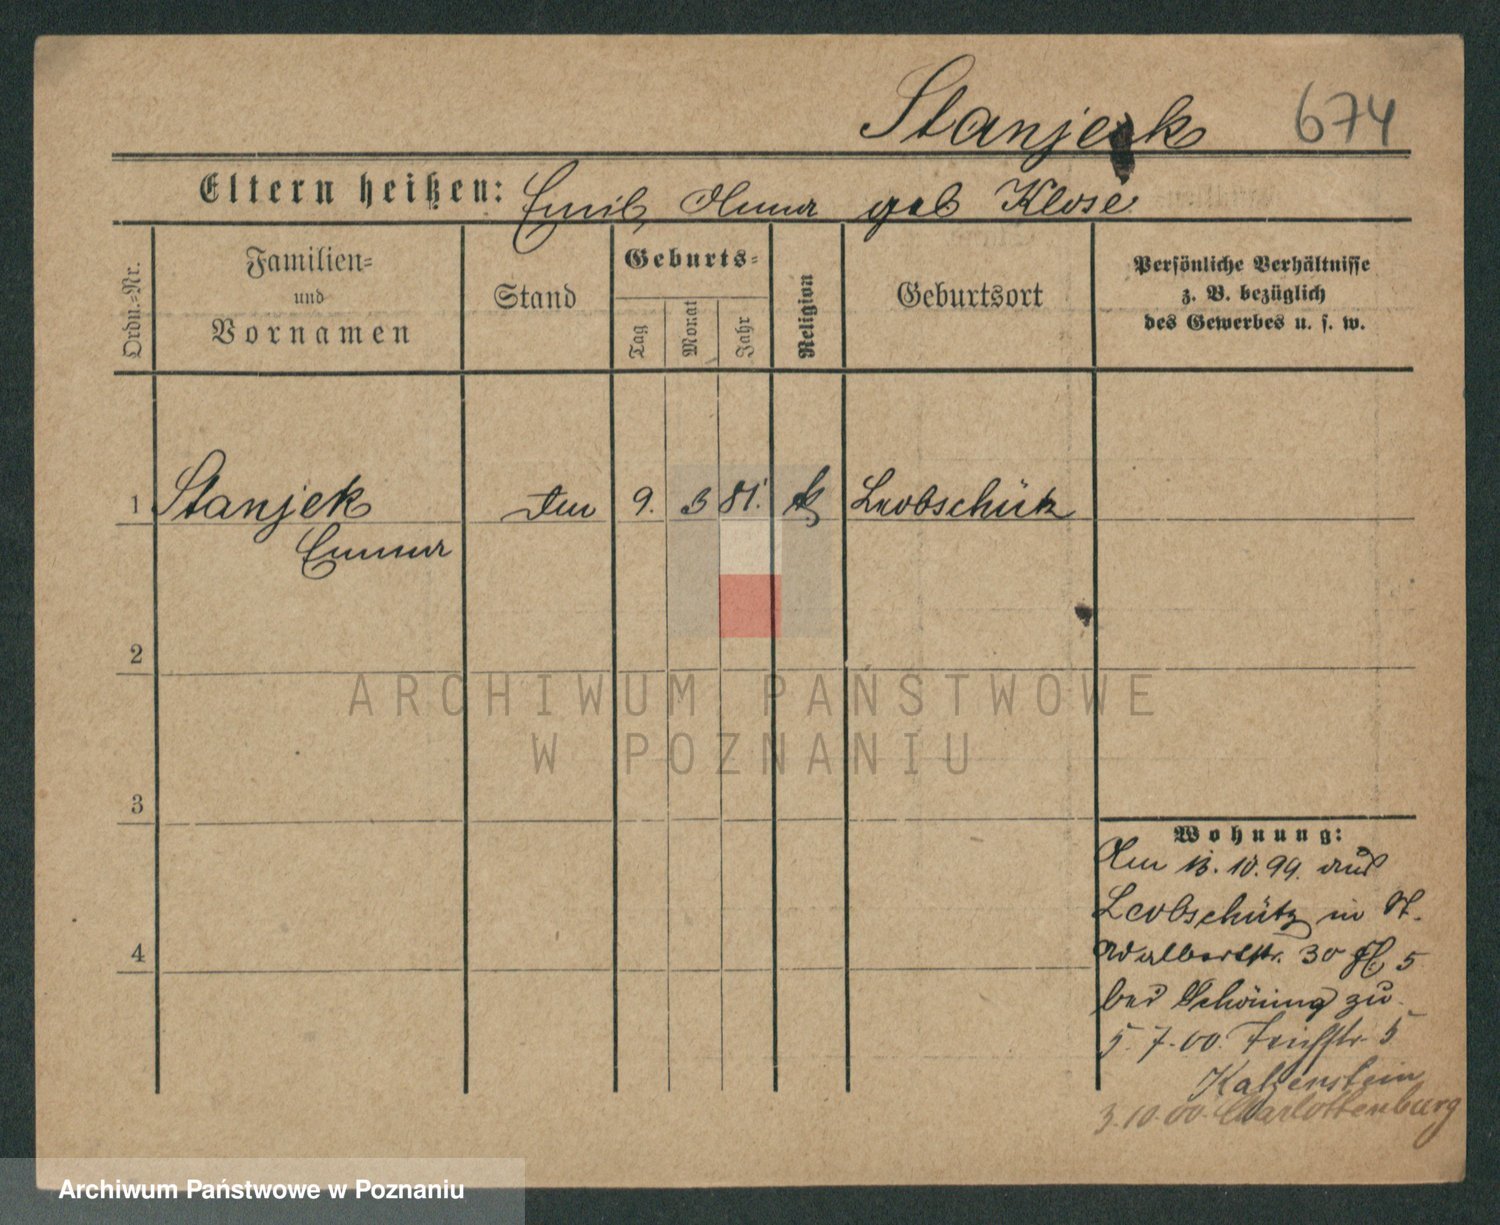 Stanjek 674
Eltern heißen: Emil, Anna geb Klose
Ordn.-Nr.
Familien-
und
Vornamen
Stand
Geburts-
Tag
Monat
Jahr
Religion
Geburtsort
Persönliche Verhältnisse
z. B. bezüglich
des Gewerbes u. s. w.
1 Stanjek 9. 3 81. k Leobschütz
Emma
2
ARCHIWUM PAŃSTWOWE
W POZNANIU
3
Wohnung:
Am 13.10.99. aus
Leobschütz in St.
Adalbertstr. 30 H 5
bei Schöning zu
5.7.00. Teichstr. 5
Katzenstein
4
3.10.00. Charlottenburg
Archiwum Państwowe w Poznaniu